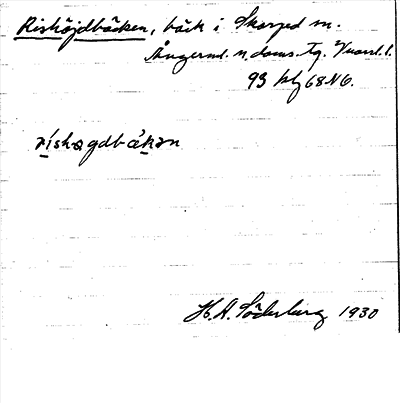 Rishöjdbäcken, bäck i Skorped sn.
Ångerml. n. doms. Tg.
93 hbj 68 NO.
ríshøgdbǽkən
H. A. Söderberg 1930